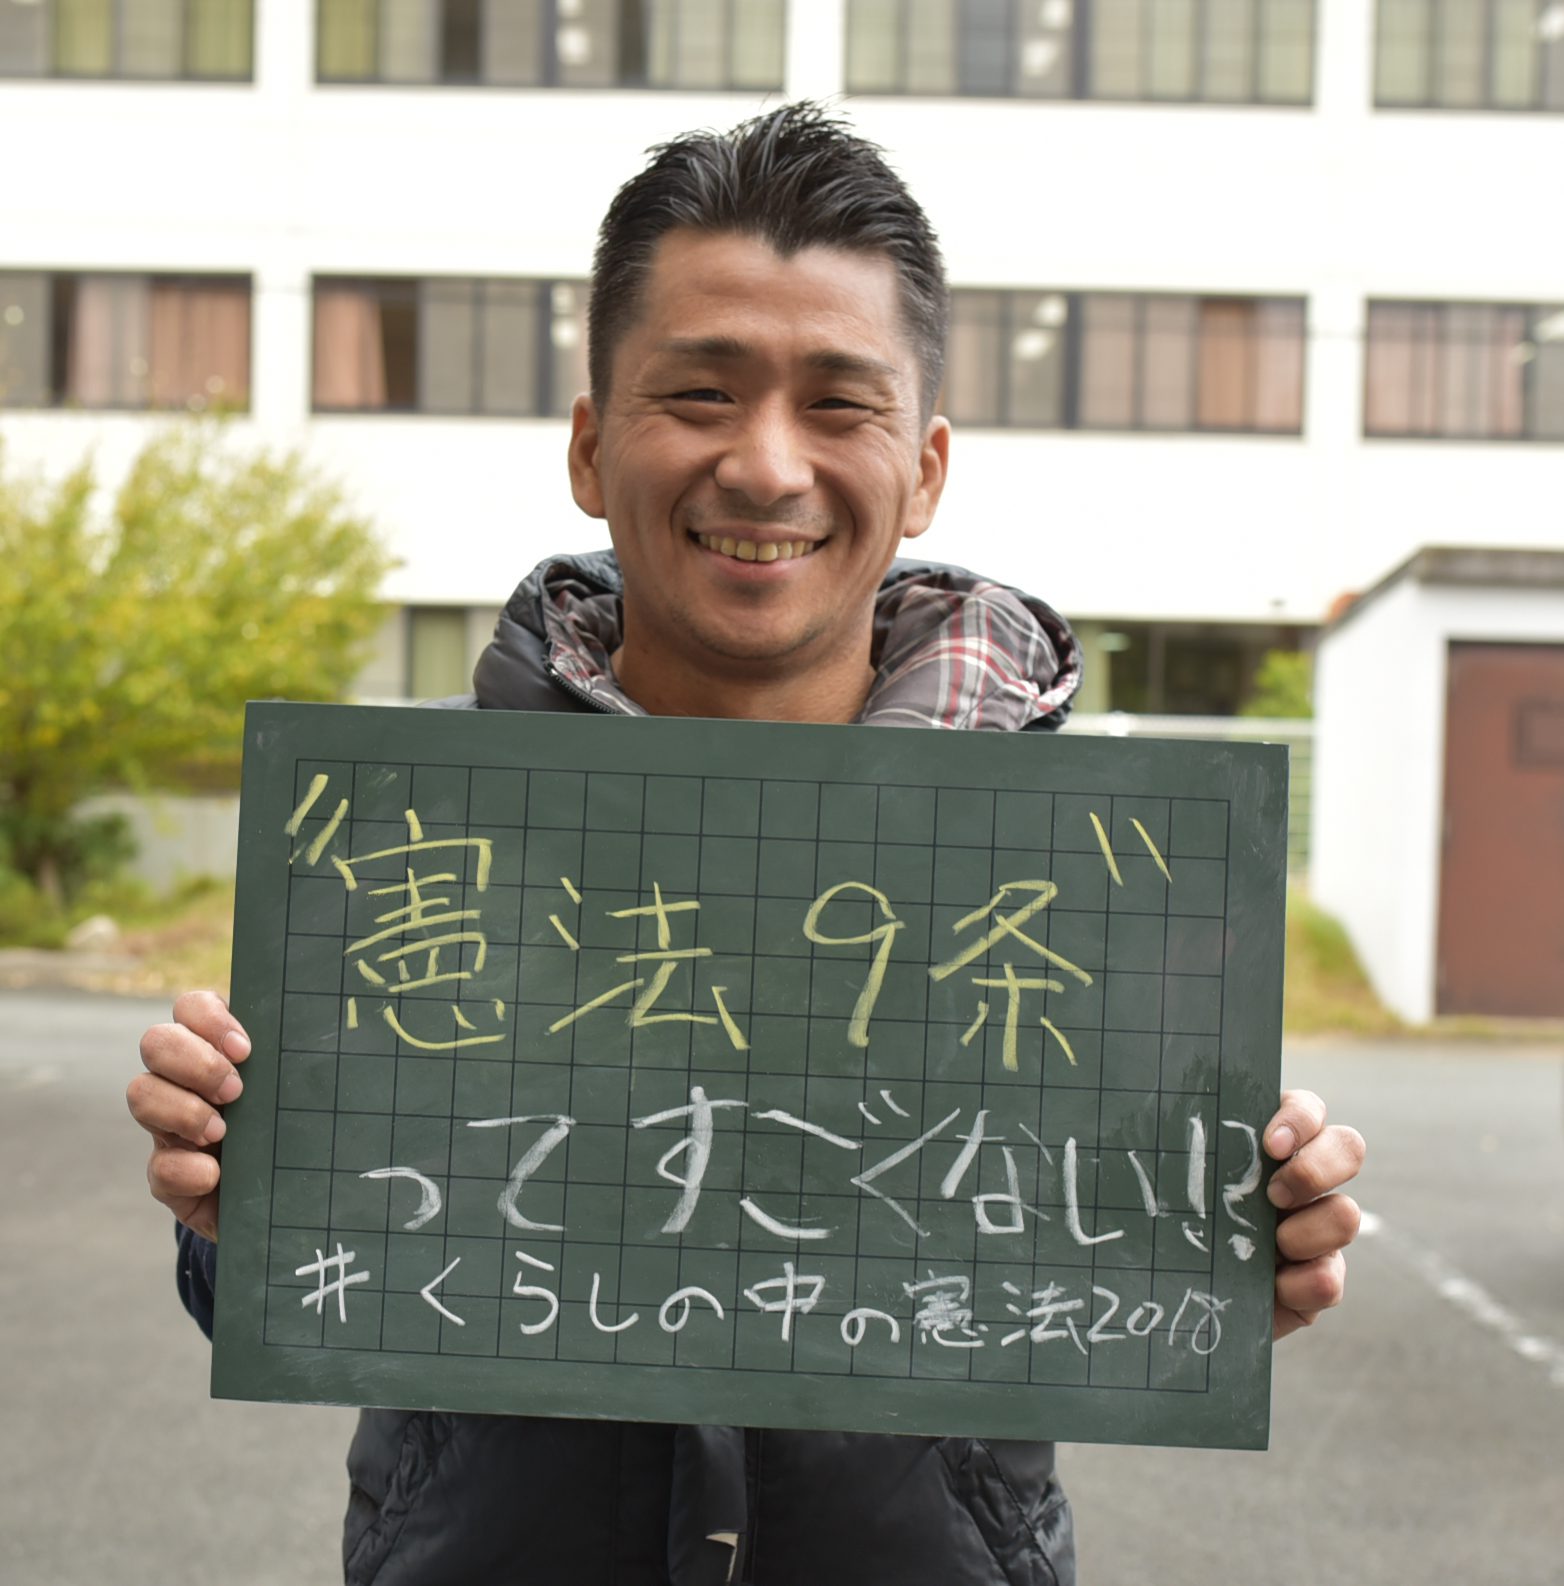 “憲法9条”
ってすごくない!?
#くらしの中の憲法2018